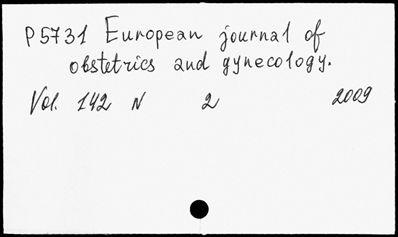 P5731 European journal of
obstetrics and gynecology.
Vol. 142 N 2 2009